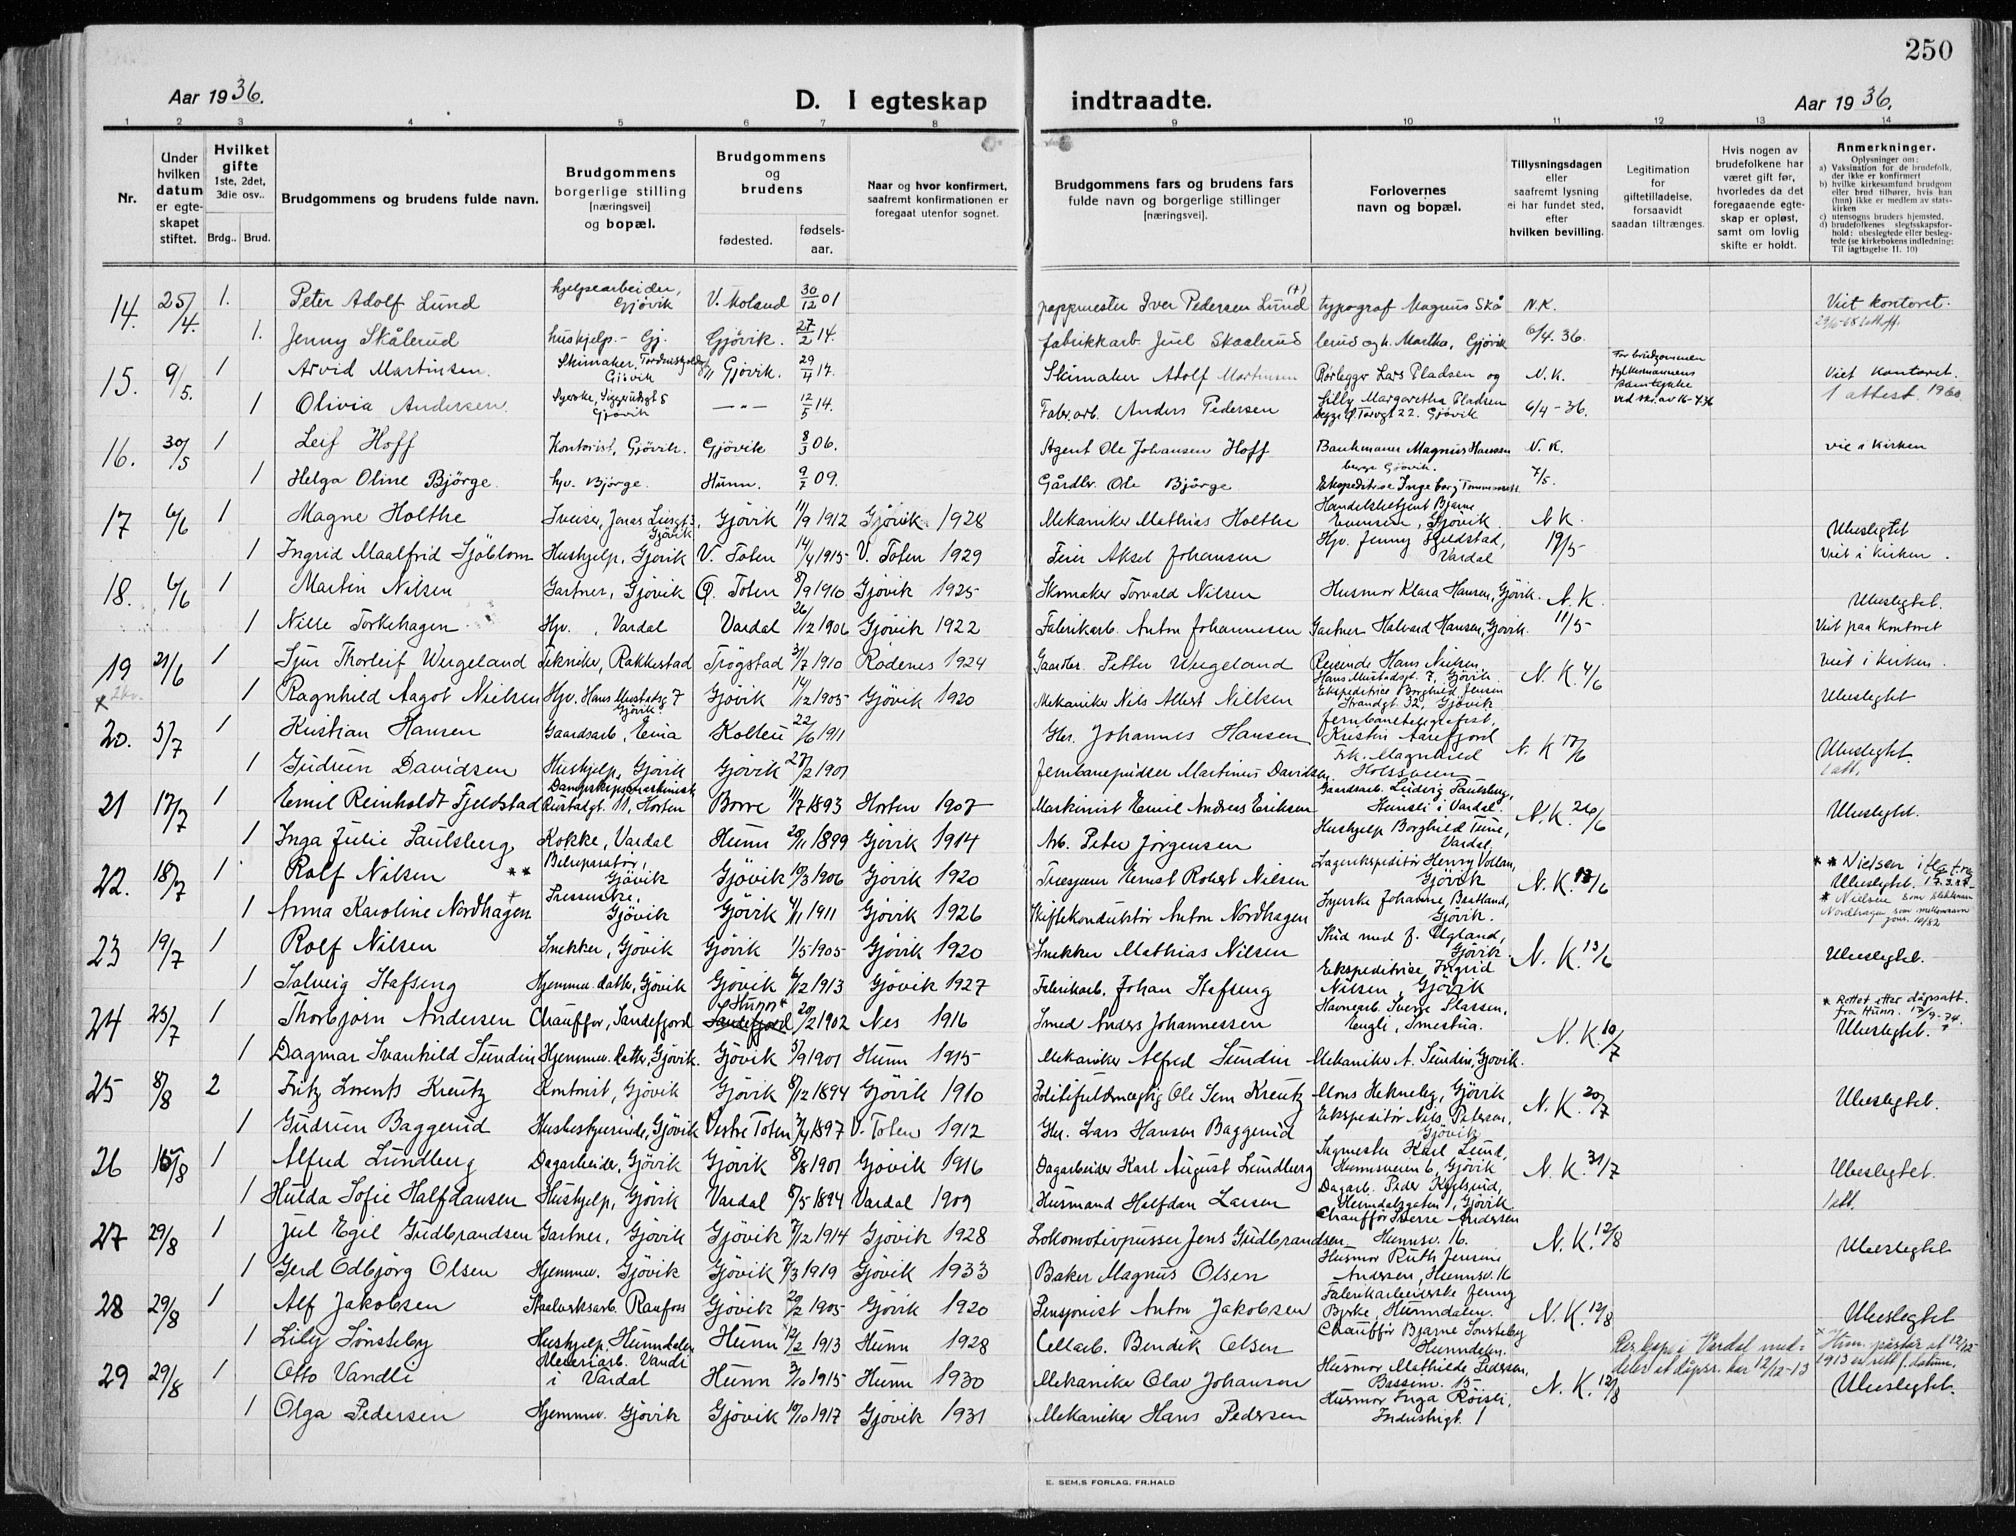 250
Aar 1936.
D. I egteskap indtraadte.
Aar 1936.
1 2 3 4 5 6 7 8 9 10 11 12 13 14
Nr.
Under hvilken datum er egteskapet stiftet.
Hvilket gifte 1ste, 2det, 3die osv..
Brdg.. Brud.
Brudgommens og brudens fulde navn.
Brudgommens borgerlige stilling [næringsvei] og bopæl.
Brudgommens og brudens
fødested.
fødsels-aar.
Naar og hvor konfirmert, saafremt konfirmationen er foregaat utenfor sognet.
Brudgommens fars og brudens fars fulde navn og borgerlige stillinger [næringsvei].
Forlovernes navn og bopæl.
Tillysningsdagen eller saafremt lysning ei har fundet sted, efter hvilken bevilling.
Legitimation for giftetilladelse, forsaavidt saadan tiltrænges.
Hvis nogen av brudefolkene har været gift før, hvorledes da det foregaaende egteskap er opløst, samt om lovlig skifte er holdt.
Anmerkninger.
Oplysninger om:
a) Vaksination for de brudefolk, der ikke er konfirmert
b) hvilke kirkesamfund brudgom eller brud tilhører, hvis han (hun) ikke er medlem av statskirken
c) utensogns bruders hjemsted.
d) brudefolkenes slegtsskapsforhold: ubeslegtede eller beslegtede (se kirkebokens indledning: Til iagttagelse II. 10)
14. 25/4. 1. Peter Adolf Lund hjelpearbeider, Gjövik V. Moland 30/12 01 pappmester Iver Pedersen Lund (†) typograf Magnus Skå N.K. Viet kontoret.
1. Jenny Skålerud hushjelp - Gj. Gjövik. 27/2 14. fabrikkarb. Juul Skaalerud lerud og h. Martha, Gjövik 6/4. 36.
15. 9/5. 1 Arvid Martinsen. Skimaker, Gjövik Gjövik. 29/4 14. Skimaker Adolf Martinsen Rörlegger Lars Pladsen og N.K. For brudgommen Fylkesmannens samtykke ved skr. av 16-4.36 Viet kontoret.
1 Olivia Andersen Syerske, Gjövik — " — 12/5 14. Fabr.arb. Anders Pedersen Lilly Margaretha Pladsen 22. Gjövik 6/4 - 36. 1 attest. 1960
16. 30/5 1 Leif Hoff Kontorist, Gjövik. Gjövik 8/3 06. Agent Ole Johansen Hoff Bankmann Magnus Hanssen N.K. vie i kirken
1 Helga Oline Björge hjv. Björge. Hunn. 9/7 09. Gårdbr. Ole Björge Ekspeditrise Ingeborg 7/5.
17 6/6 1 Magne Holthe Sveiser, Jonas Liesgt 3, Gjövik Gjövik 11/9 1912 Gjövik 1928 Mekaniker Mathias Holthe Handelsbetjent Bjarne Evensen, Gjövik N.K. Ubeslegtet
1 Ingrid Maalfrid Sjöblom Hushjelp, Gjövik V. Toten 14/4 1915 V. Toten 1929 Feier Aksel Johansen Hjv. Jenny Fjeldstad, Vardal 19/5 Viet i kirken.
18. 6/6 1 Martin Nilsen Gartner, Gjövik Ö. Toten 8/9 1910 Gjövik 1925 Skomaker Torvald Nilsen Husmor Klara Hansen, Gjövik. N.K. Ubeslegtet.
1 Nille Torkehagen Hjv., Vardal Vardal 26/12 1906 Gjövik 1922 Fabrikarb. Anton Johannesen Gartner Halvard Hansen, Gjövik. 11/5 Viet paa kontoret
19 21/6 1 Sjur Thorleif Wergeland Tekniker, Rakkestad Trögstad 31/7 1910 Rödenes 1924 Gaardbr. Petter Wergeland Reisende Hans Nielsen, Hans Mustadsgt. 7, Gjövik. N.K. 4/6 Viet i kirken.
1 Ragnhild Aagot Nielsen Hjv. Hans Mustadsg 7 Gjövik Gjövik 14/12 1905 Gjövik 1920 Mekaniker Nils Albert Nielsen Ekspeditrice Borghild Jensen Strandgt. 32, Gjövik Ubeslegtet
20. 5/7 1 Kristian Hansen Gaardsarb., Eina Kolbu 22/6 1911 Gbr. Johannes Hansen Jernbanetelegrafist, Kristin Aarefjord N.K. 17/6 Ubeslegtet.
1 Gudrun Davidsen Hushjelp, Gjövik Gjövik 27/2 1901 Jernbanepudser Martinus Davidsen Frk. Magnhild Holsveen 1 att.
21 17/7 1 Emil Reinholdt Fjeldstad Dampskipsmaskinist 11, Horten Borre 11/7 1893 Horten 1907 Maskinist Emil Andreas Eriksen Gaardsarb. Ludvig Paulsberg, Hunsli i Vardal. N.K. 26/6 Ubeslegtet.
1 Inga Julie Paulsberg Kokke, Vardal Hunn 20/11 1899 Gjövik 1914 Arb. Peter Jörgensen Hushjelp Borghild Tune, Vardal.
22. 18/7 1 Rolf Nilsen ** Bilreparatör, Gjövik Gjövik 10/3 1906 Gjövik 1920 Ernst Robert Nielsen Lagerekspeditör Henry Vollan, Gjövik N.K. 18/6 ** Nielsen Ubeslegtet.
1 Anna Karoline Nordhagen* Presserske, Gjövik Gjövik 4/11 1911 Gjövik 1926 Skiftekonduktör Anton Nordhagen Syerske Johanne Bratland, Gjövik. * Nielsen som slektsnavn Nordhagen som mellomnavn
23 19/7 1 Rolf Nilsen Snekker, Gjövik Gjövik 1/5 1905 Gjövik 1920 Snekker Mathias Nilsen Stud med f. Ugland, Gjövik N.K. 13/6 Ubeslegtet.
1 Solveig Stafseng Hjemmev. datter, Gjövik Gjövik 6/12 1913 Gjövik 1927 Fabrikarb. Johan Stafseng Ekspeditrise Ingrid Nilsen, Gjövik
24 25/7 1 Thorbjörn Andersen Chauffør, Sandefjord Hunn* Sandefjord 20/2 1902 Nes 1916 Smed Anders Johannessen Havnearb. Sverre Slassen, Engli, Smestua. N.K. 10/7 * Rettet etter dåpsatt. fra Hunn. 12/9-74. Ubeslegtet.
1 Dagmar Svanhild Sundin Hjemmev. datter, Gjövik Gjövik 5/9 1901 Hunn 1915 Mekaniker Alfred Sundin Mekaniker A. Sundin, Gjövik.
25 8/8 2 Fritz Lorents Kreutz Kontorist, Gjövik Gjövik 8/12 1894 Gjövik 1910 Politifuldmægtig Ole Sem Kreutz Mons Hekneby, Gjövik N.K. 20/7 Ubeslegtet.
1 Gudrun Baggerud Husbestyrerinde, Gjövik Vestre Toten 3/4 1897 V. Toten 1912 Gbr. Lars Hansen Baggerud Ekspeditör Nils Peterson, Gjövik
26 15/8 1 Alfred Lundberg Dagarbeider, Gjövik Gjövik 8/8 1901 Gjövik 1916 Dagarbeider Karl August Lundberg Sagmester Karl Lund, Hunnsveien 6, Gjövik N.K. 31/7 Ubeslegtet.
1 Hulda Sofie Halfdansen Hushjelp, Gjövik Vardal 8/5 1894 Vardal 1909 Husmand Halfdan Larsen Dagarb. Peder Heimdalsgaten 1, Gjövik 1 att.
27 29/8 1 Jul Egil Gudbrandsen Gartner, Gjövik Gjövik 7/12 1914 Gjövik 1928 Lokomotivpusser Jens Gudbrandsen Chauffør Sverre Andersen Hunnsv. 16. N.K. 12/8 Ubeslegtet
1 Gerd Odbjörg Olsen Hjemmev. Gjövik Gjövik 7/3 1919 Gjövik 1933 Baker Magnus Olsen Husmor Ruth Jensine Andersen, Hunnsv. 16
28 29/8 1 Alf Jakobsen Staalverksarb. Raufoss Gjövik 20/2 1905 Gjövik 1920 Pensjonist Anton Jakobsen Fabrikarbeiderske Jenny Byrke, Hunndalen. N.K. 12/8 Ubeslegtet
1 Lily Sønsteby Hushjelp, Hunndalen Hunn 12/2 1913 Hunn 1928 Cellarb. Bendik Olsen Chauffør Bjarne Sønsteby Hunndalen. Res.kap. i Vardal meddeler at dåpsr. har 12/12-13 * Hun påstår at 12/12 1913 er rett f. datum.
29 29/8 1 Otto Vandli Meieriarb. Vandli i Vardal Hunn 3/10 1915 Hunn 1930 Mekaniker Olav Johansen Husmor Mathilde Pedersen, Bassin. 15 N.K. 12/8 Ubeslegtet.
1 Olga Pedersen Hjemmev. Gjövik Gjövik 10/10 1917 Gjövik 1931 Mekaniker Hans Pedersen Husmor Inga Röisli, Industrigt. 1
E. SEM,S FORLAG, FR.HALD